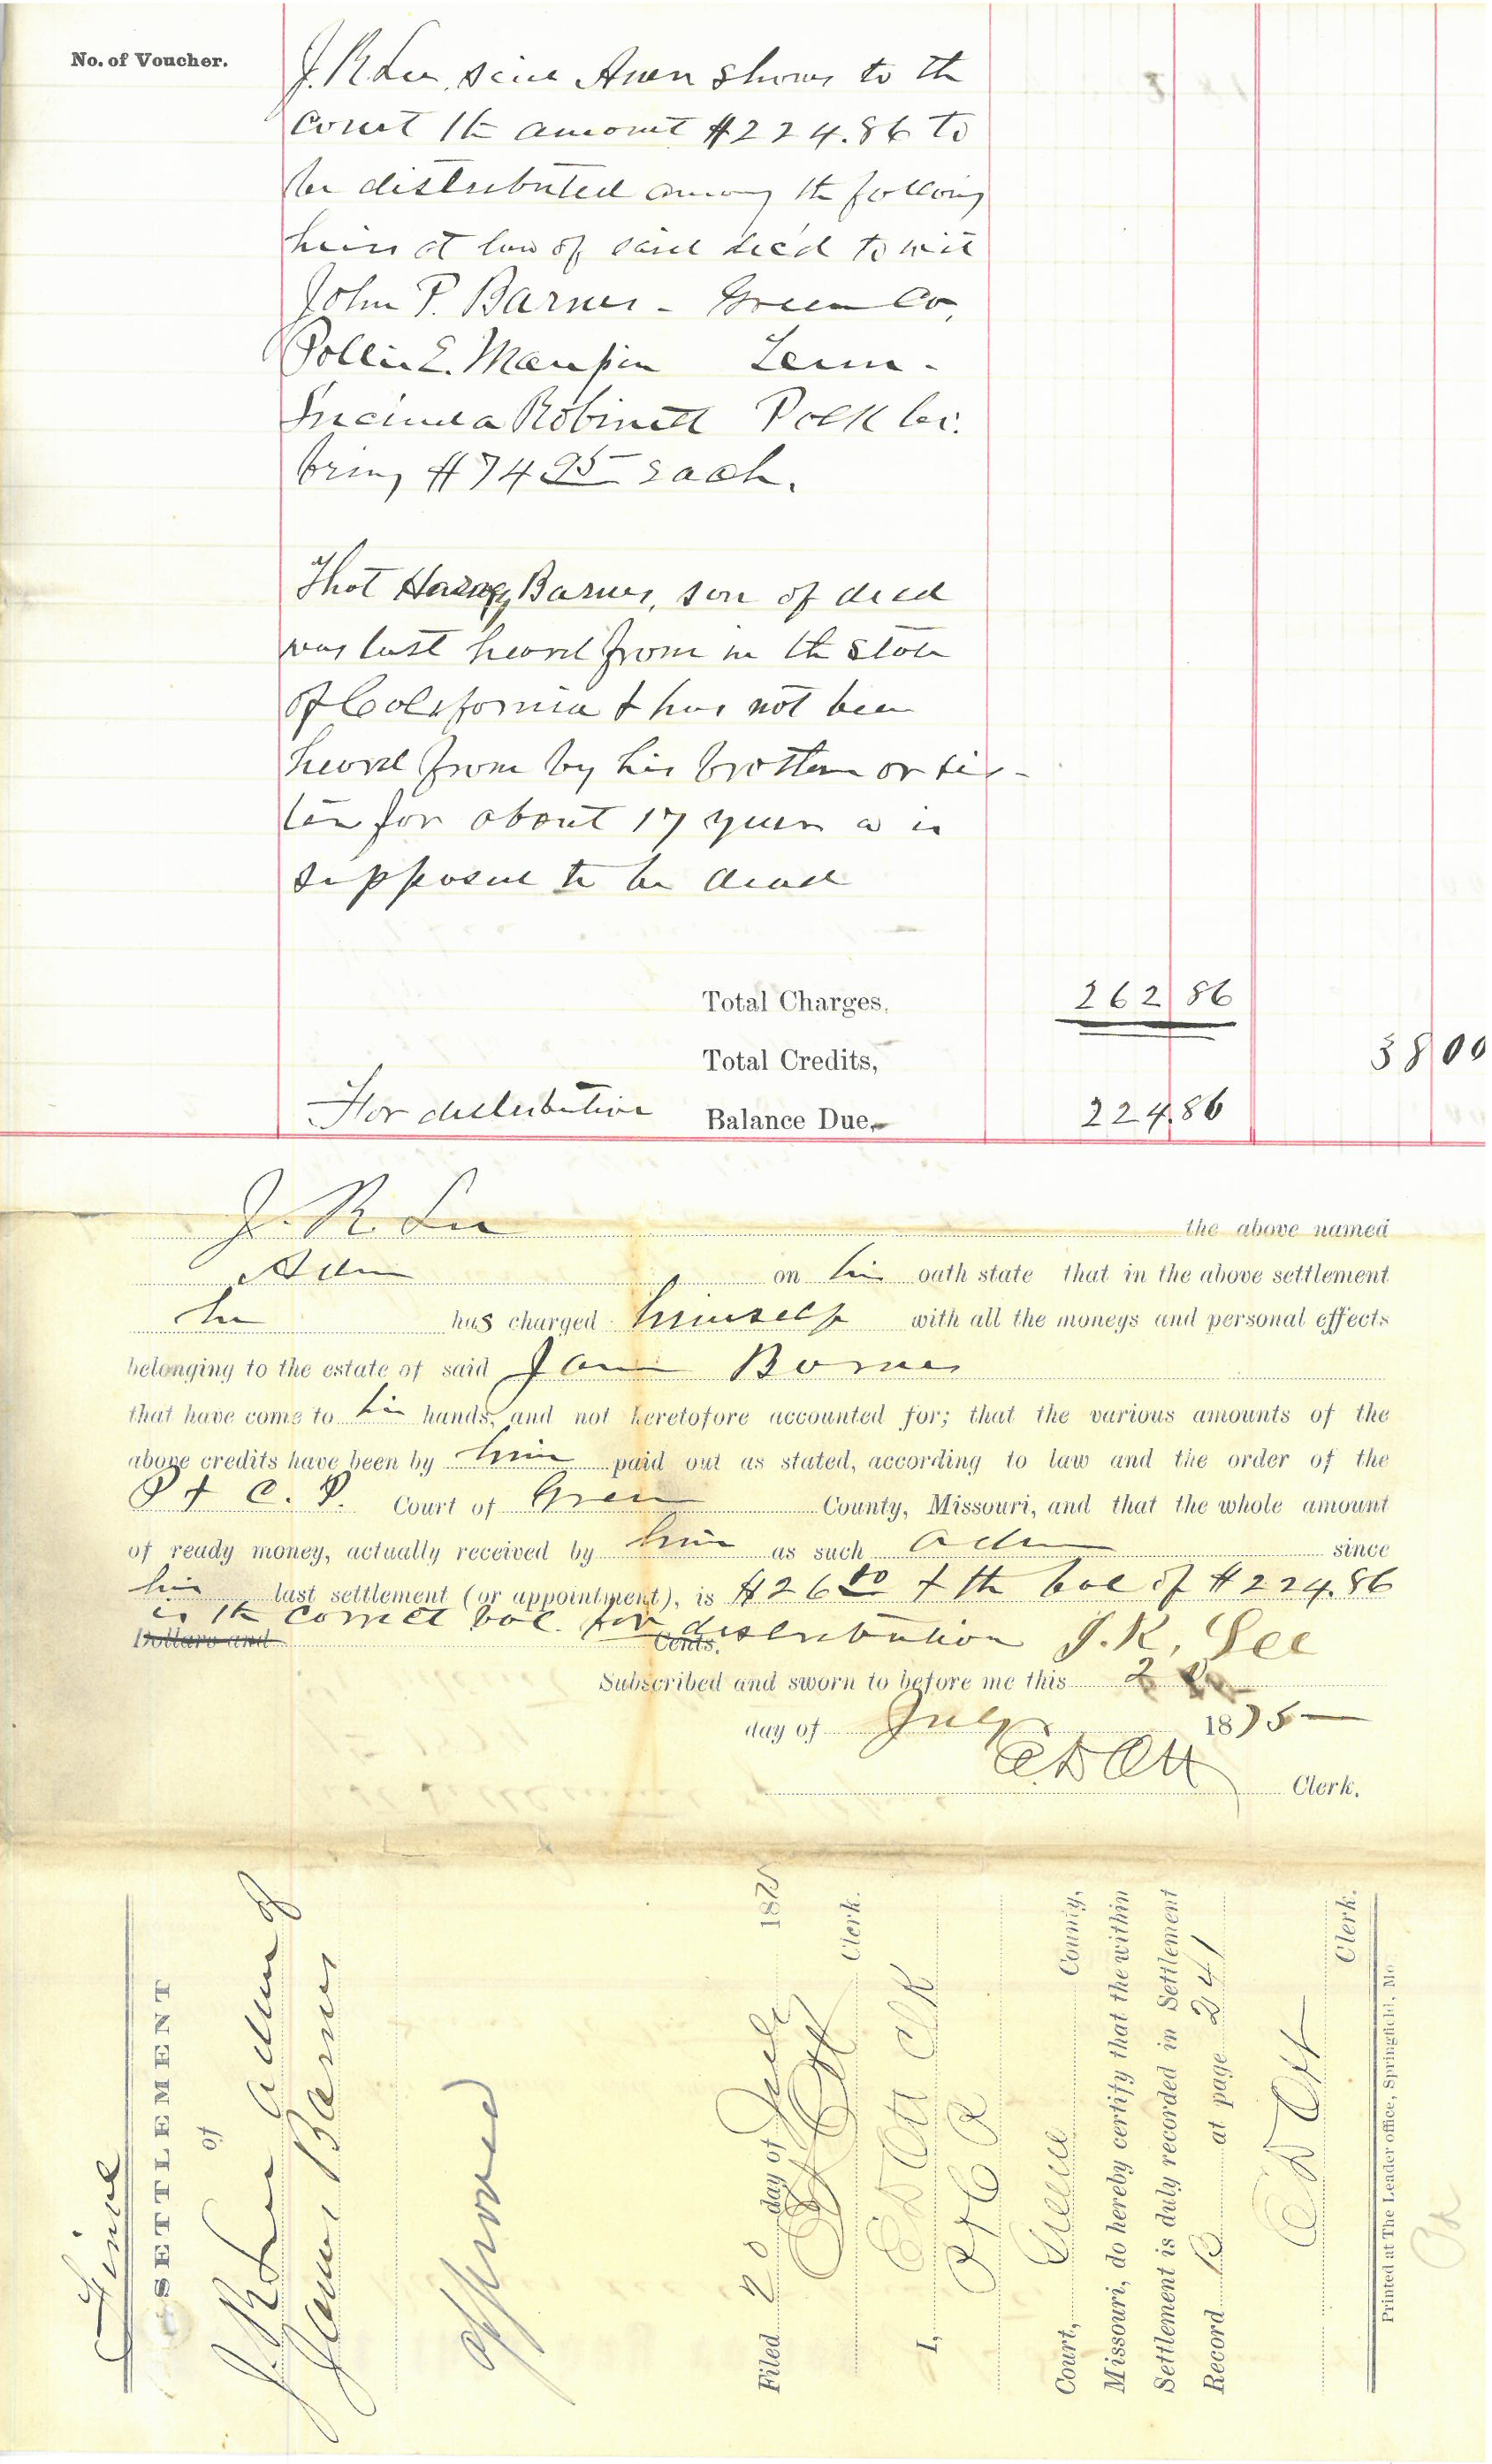 No. of Voucher.
J. R. Lee, said Adm shows to the
court the amount $224.86 to
be distributed among the following
heirs at law of said dec'd to wit
John P. Barnes - Green Co,
Pollie E. Maupin Tenn.
Lucinda Robinett Polk Co.
being $74 95 each.
That Barnes, son of decd
was last heard from in the State
of California & has not been
heard from by his brother or sis-
ter for about 17 years & is
supposed to be dead
Total Charges, 262 86
Total Credits, 38 00
For distribution Balance Due, 224.86
J. R. Lee the above named
Adm on his oath state that in the above settlement
he has charged himself with all the moneys and personal effects
belonging to the estate of said James Barnes
that have come to his hands, and not heretofore accounted for; that the various amounts of the
above credits have been by him paid out as stated, according to law and the order of the
P & C. P. Court of Green County, Missouri, and that the whole amount
of ready money, actually received by him as such adm since
his last settlement (or appointment), is $26 00 & the bal of $224.86
is the correct bal. for distribution J. R. Lee
Dollars and Cents.
Subscribed and sworn to before me this 20
day of July 1875
E D Ott Clerk.
Final
SETTLEMENT
of
J. R. Lee adm of
James Barnes
approved
Filed 20 day of July 1875
E D Ott Clerk.
I, E D Ott Clk
P & C P
Court, Greene County,
Missouri, do hereby certify that the within
Settlement is duly recorded in Settlement
Record B at page 241
E D Ott
Clerk.
Printed at The Leader office, Springfield, Mo.